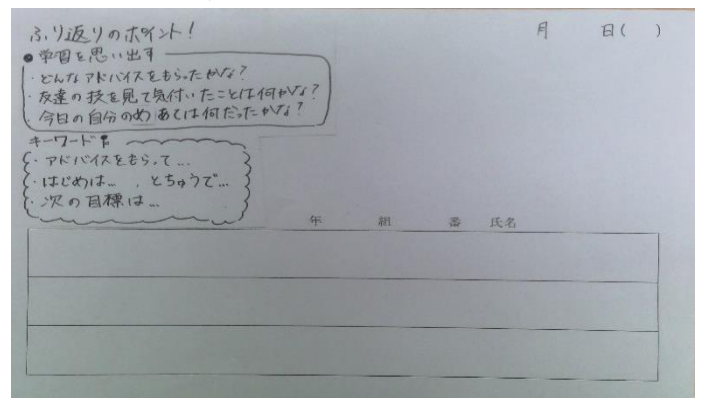 ふり返りのポイント!
月 日( )
●学習を思い出す
・どんなアドバイスをもらったかな?
・友達の技を見て気付いたことは何かな?
・今日の自分のめあては何だったかな?
キーワード
・アドバイスをもらって…
・はじめは…、とちゅうで…
・次の目標は…
年 組 番 氏名